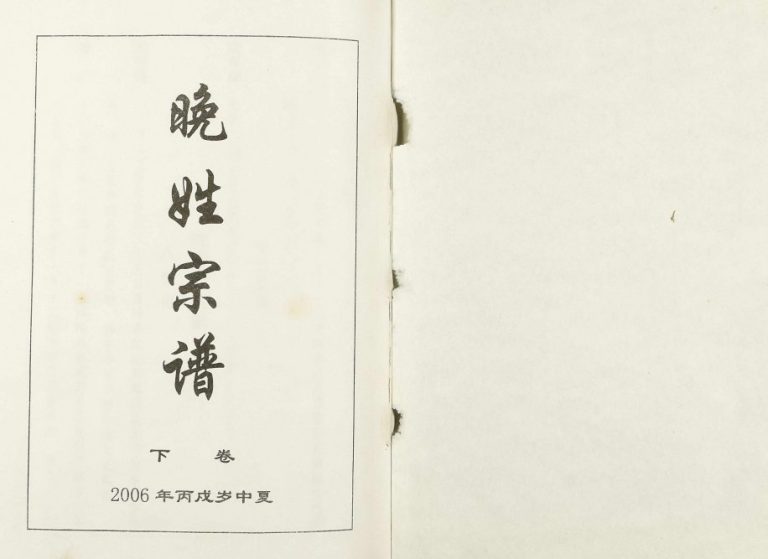 晚姓宗谱
下 卷
2006年丙戌岁中夏